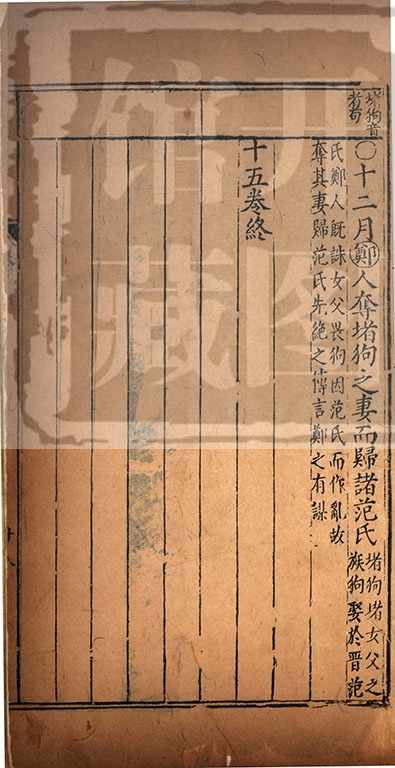 堵狗音
者苟
〇十二月鄭人奪堵狗之妻而歸諸范氏
堵狗堵女父之
族狗娶於晋范
氏鄭人既誅女父畏狗因范氏而作亂故
奪其妻歸范氏先絶之傳言鄭之有謀
十五卷終
馆藏